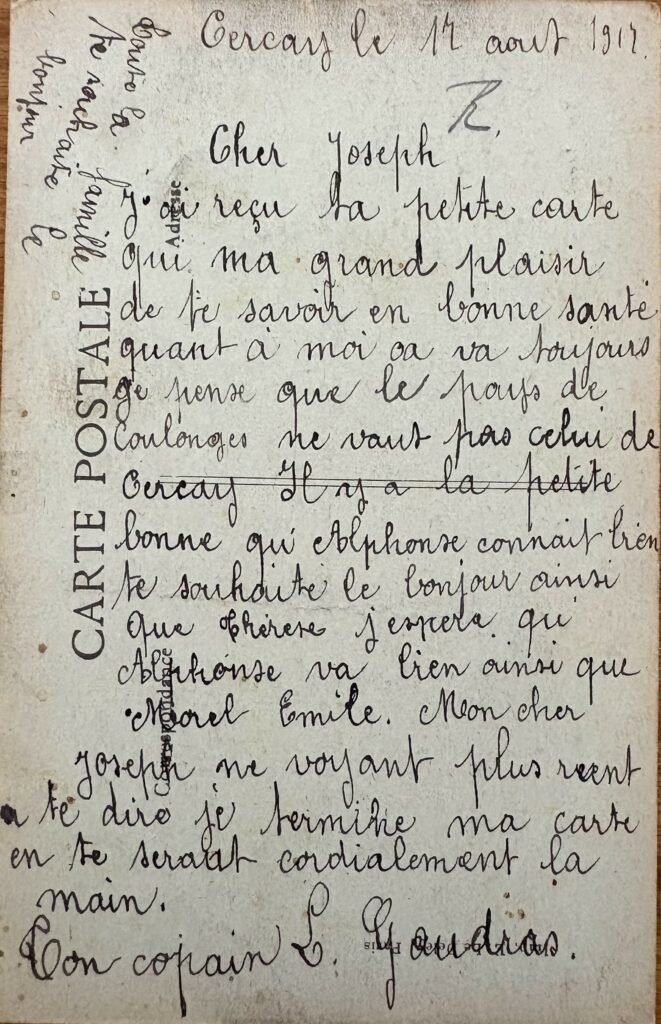 Cercay le 17 aout 1917.
Cher Joseph
J'ai reçu ta petite carte
qui ma grand plaisir
de te savoir en bonne santé
quant à moi ca va toujours
je pense que le pays de
Coulonges ne vaut pas celui de
Cercay Il y a la petite
bonne qu'Alphonse connait bien
te souhaite le bonjour ainsi
que Thérese j'espere qu'
Alphonse va bien ainsi que
Morel Emile. Mon cher
Joseph ne voyant plus rient
a te dire je termine ma carte
en te serant cordialement la
main.
Ton copain L. Gaudras.
Toute la famille
te souhaite le
bonjour
CARTE POSTALE
Correspondance
Adresse